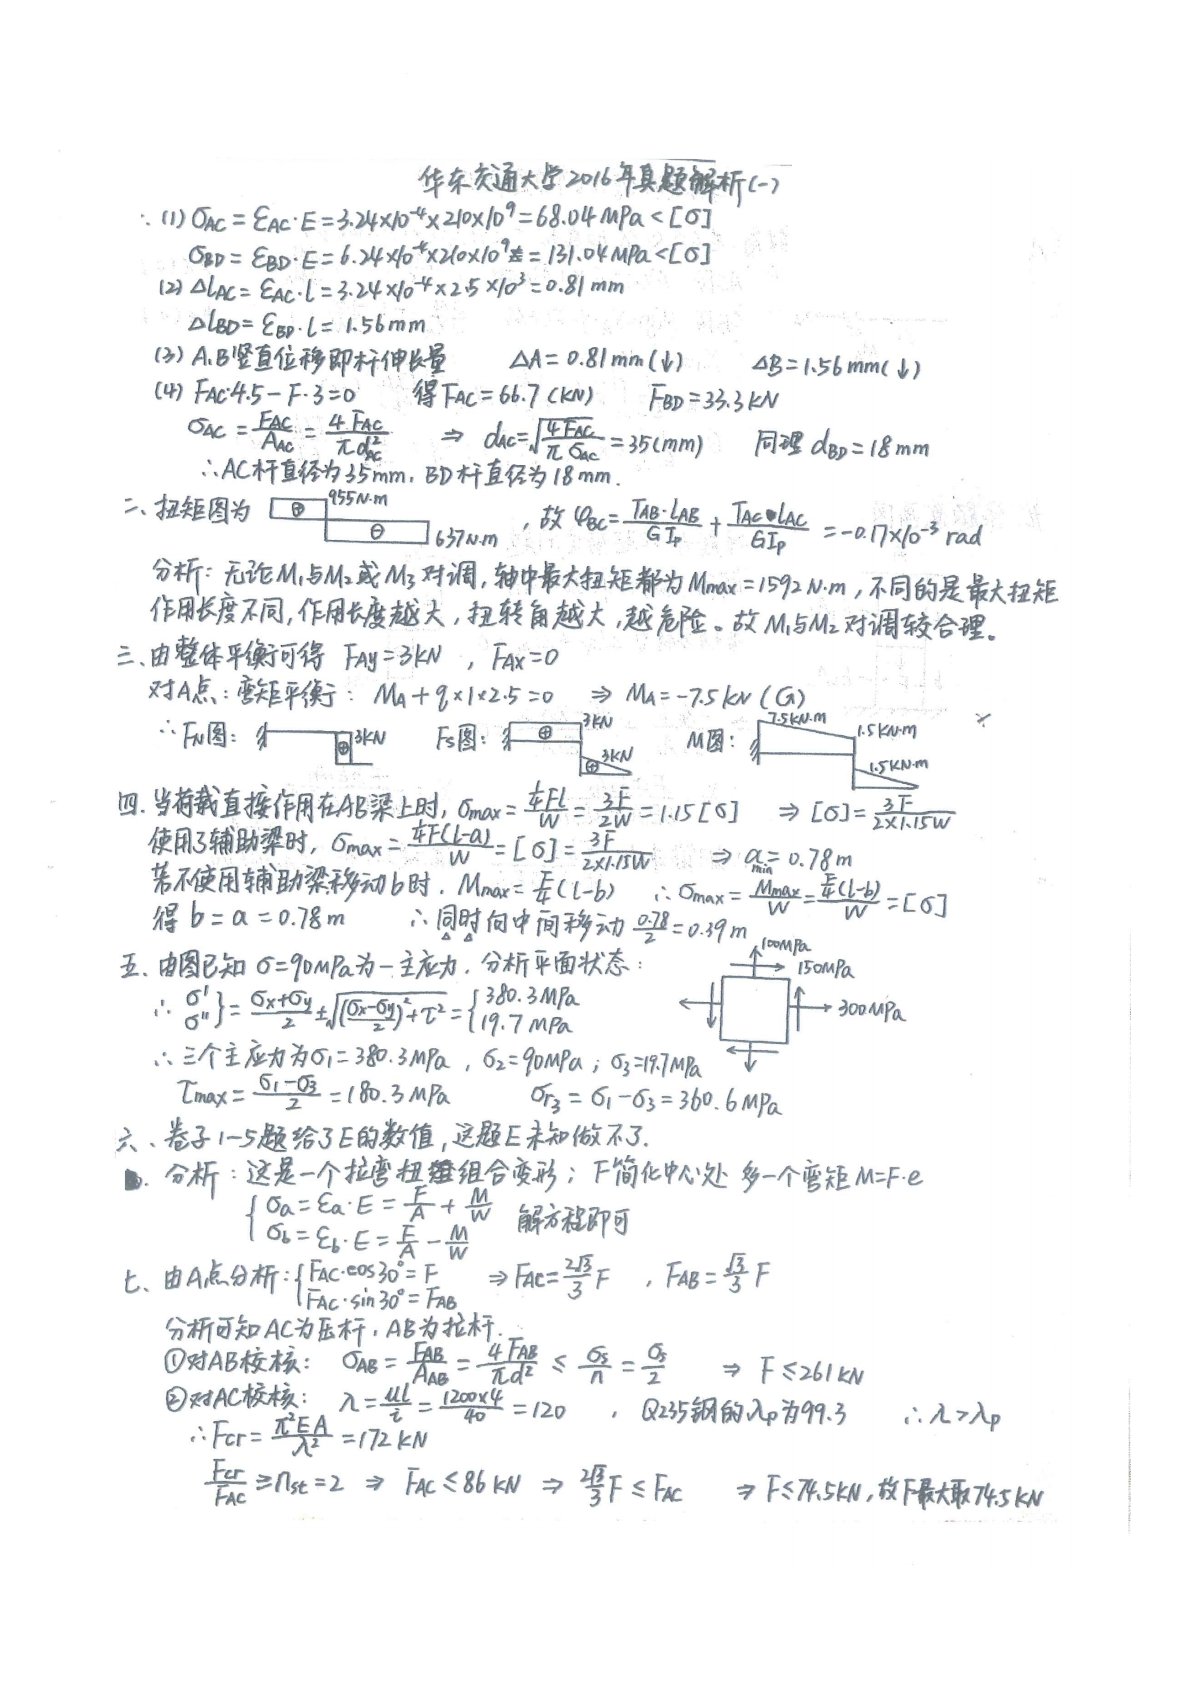 华东交通大学2016年真题解析(一)
∴ (1) σAC = εAC·E = 3.24×10⁻⁴×210×10⁹ = 68.04 MPa < [σ]
σBD = εBD·E = 6.24×10⁻⁴×210×10⁹ = 131.04 MPa < [σ]
(2) ΔlAC = εAC·l = 3.24×10⁻⁴×2.5×10³ = 0.81 mm
ΔlBD = εBD·l = 1.56 mm
(3) A.B竖直位移即杆伸长量 ΔA = 0.81 mm (↓) ΔB = 1.56 mm (↓)
(4) FAC·4.5 - F·3 = 0 得 FAC = 66.7 (KN) FBD = 33.3 KN
σAC = FAC/AAC = 4FAC/πd²AC ⇒ dAC = √(4FAC/πσAC) = 35 (mm) 同理 dBD = 18 mm
∴ AC杆直径为35mm, BD杆直径为18mm.
二、扭矩图为 ⊕ 955N·m ⊖ 637N·m , 故 φBC = TAB·lAB/GIp + TAC·lAC/GIp = -0.17×10⁻³ rad
分析: 无论M₁与M₂或M₃对调, 轴中最大扭矩都为Mmax = 1592 N·m, 不同的是最大扭矩
作用长度不同, 作用长度越大, 扭转角越大, 越危险。故M₁与M₂对调较合理。
三、由整体平衡可得 FAy = 3KN , FAx = 0
对A点: 弯矩平衡: MA + q×1×2.5 = 0 ⇒ MA = -7.5 KN (G)
∴ FN图: ⊕ 3KN FS图: ⊕ 3KN ⊕ 3KN M图: 7.5KN·m 1.5KN·m 1.5KN·m
四. 当荷载直接作用在AB梁上时, σmax = ¼Fl/W = 3F/2W = 1.15[σ] ⇒ [σ] = 3F/2×1.15W
使用了辅助梁时, σmax = ¼F(l-a)/W = [σ] = 3F/2×1.15W ⇒ amin = 0.78 m
若不使用辅助梁移动b时. Mmax = F/4(l-b) ∴ σmax = Mmax/W = F/4(l-b)/W = [σ]
得 b = a = 0.78 m ∴ 同时向中间移动 0.78/2 = 0.39 m
五、由图已知 σ = 90MPa为一主应力, 分析平面状态: 100MPa 150MPa 300MPa
∴ σ' σ''} = σx+σy/2 ± √((σx-σy/2)²+τ²) = {380.3 MPa 19.7 MPa
∴ 三个主应力为σ₁ = 380.3MPa , σ₂ = 90MPa ; σ₃ = 19.7MPa
τmax = σ₁-σ₃/2 = 180.3 MPa σr₃ = σ₁-σ₃ = 360.6 MPa
六、卷子1-5题给了E的数值, 这题E未知做不了.
分析: 这是一个拉弯扭组合变形; F简化中心处 多一个弯矩 M = F·e
{σa = εa·E = F/A + M/W
σb = εb·E = F/A - M/W 解方程即可
七、由A点分析: {FAC·cos30° = F FAC·sin30° = FAB ⇒ FAC = 2√3/3 F , FAB = √3/3 F
分析可知AC为压杆, AB为拉杆.
①对AB校核: σAB = FAB/AAB = 4FAB/πd² ≤ σs/n = σs/2 ⇒ F ≤ 261 KN
②对AC校核: λ = μl/i = 1200×4/40 = 120 , Q235钢的λp为99.3 ∴ λ > λp
∴ Fcr = π²EA/λ² = 172 KN
Fcr/FAC ≥ nst = 2 ⇒ FAC ≤ 86 KN ⇒ 2√3/3 F ≤ FAC ⇒ F ≤ 74.5KN, 故F最大取74.5KN